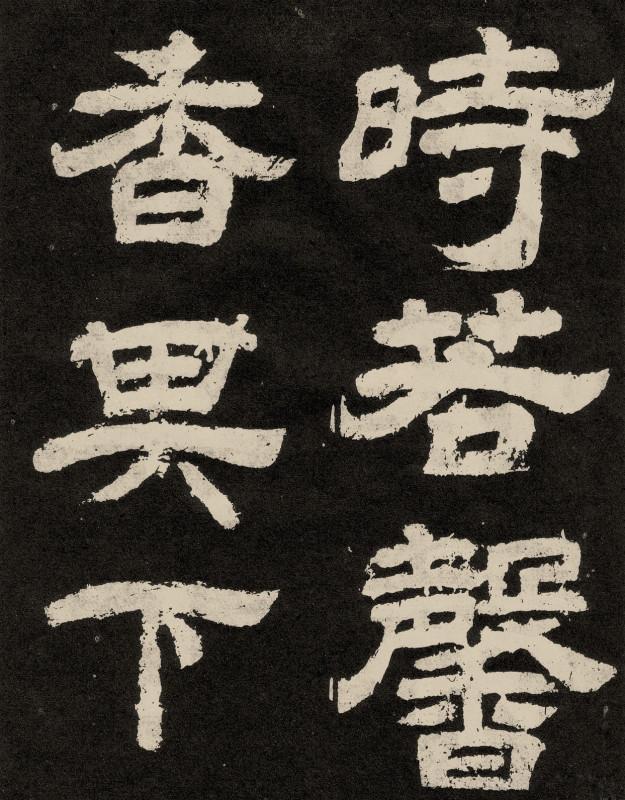 時若馨
香冥下